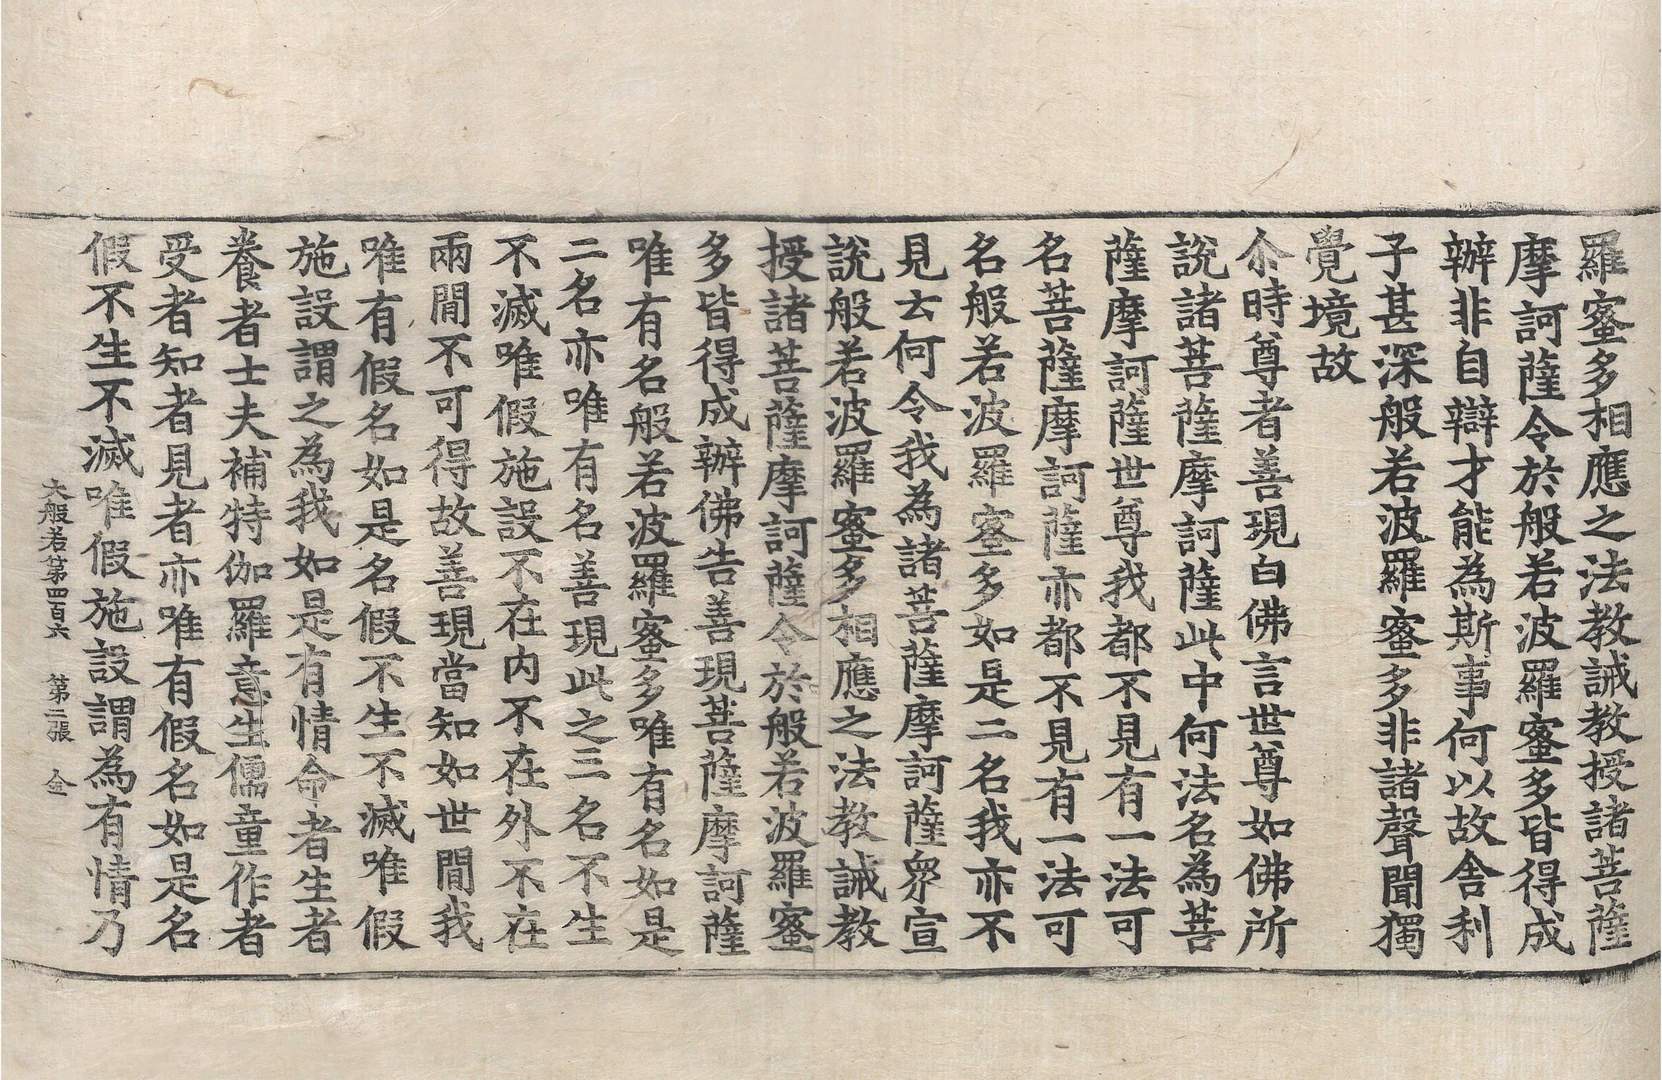 羅蜜多相應之法教誡教授諸菩薩
摩訶薩令於般若波羅蜜多皆得成
辦非自辯才能為斯事何以故舍利
子甚深般若波羅蜜多非諸聲聞獨
覺境故
尒時尊者善現白佛言世尊如佛所
說諸菩薩摩訶薩此中何法名為菩
薩摩訶薩世尊我都不見有一法可
名菩薩摩訶薩亦都不見有一法可
名般若波羅蜜多如是二名我亦不
見云何令我為諸菩薩摩訶薩衆宣
說般若波羅蜜多相應之法教誡教
授諸菩薩摩訶薩令於般若波羅蜜
多皆得成辦佛告善現菩薩摩訶薩
唯有名般若波羅蜜多唯有名如是
二名亦唯有名善現此之三名不生
不滅唯假施設不在內不在外不在
兩閒不可得故善現當知如世閒我
唯有假名如是名假不生不滅唯假
施設謂之為我如是有情命者生者
養者士夫補特伽羅意生儒童作者
受者知者見者亦唯有假名如是名
假不生不滅唯假施設謂為有情乃
大般若第四百六 第二張 金